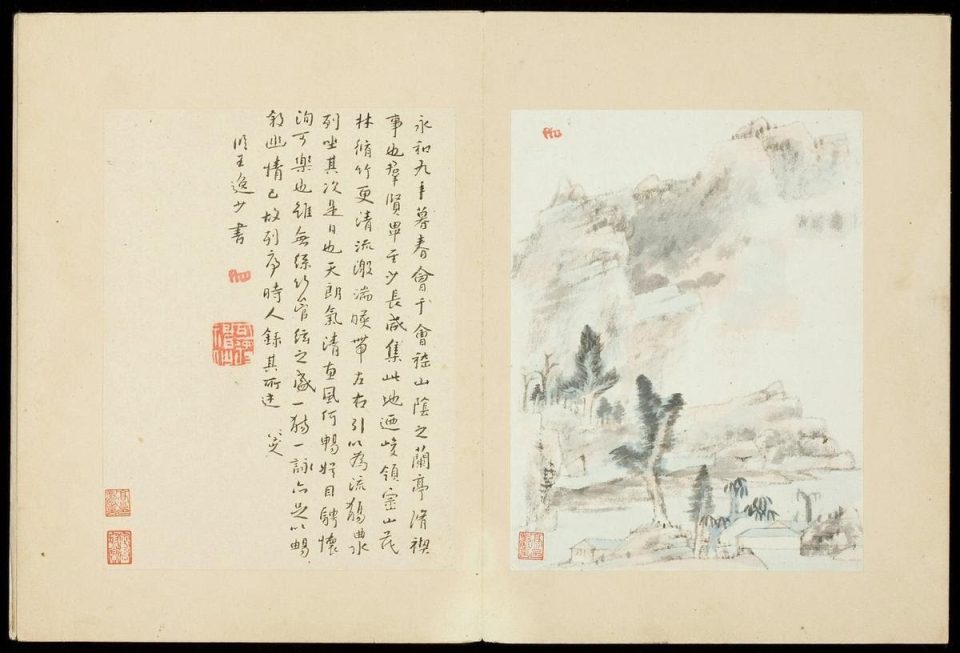 永和九年暮春會于會稽山陰之蘭亭脩禊
事也羣賢畢至少長咸集此地迺峻領崇山茂
林脩竹更清流激湍暎帶左右引以為流觴曲水
列坐其次是日也天朗氣清惠風何暢娛目騁懷
洵可樂也雖無絲竹管絃之盛一觴一詠亦足以暢
敘幽情已故列序時人錄其所述
臨王逸少書